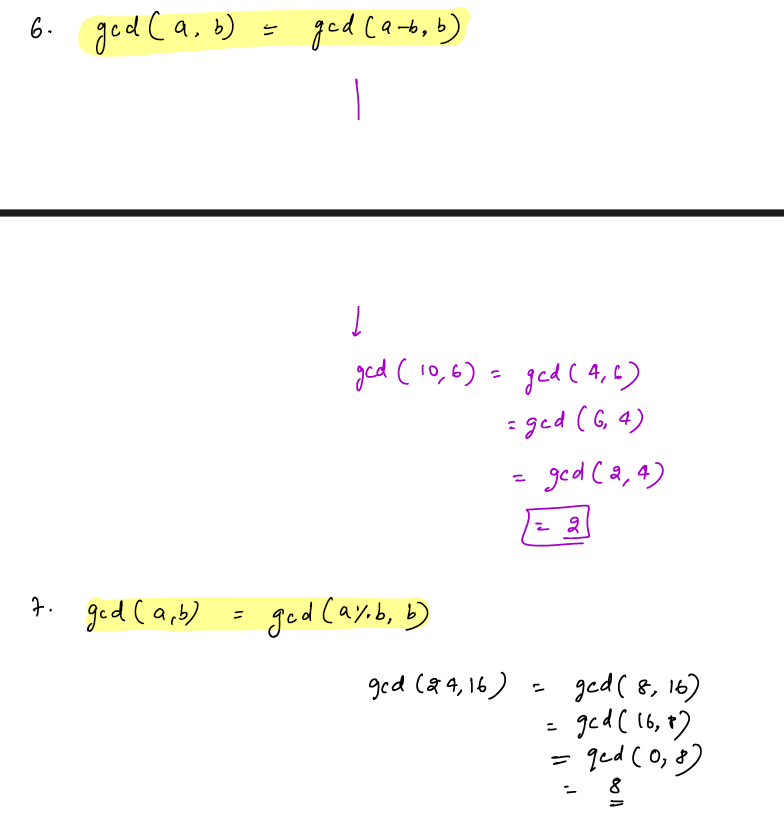 6. gcd(a, b) = gcd(a-b, b)
gcd(10,6) = gcd(4,6)
= gcd(6, 4)
= gcd(2,4)
= 2
7. gcd(a,b) = gcd(a%b, b)
gcd(24,16) = gcd(8, 16)
= gcd(16,8)
= gcd(0,8)
= 8